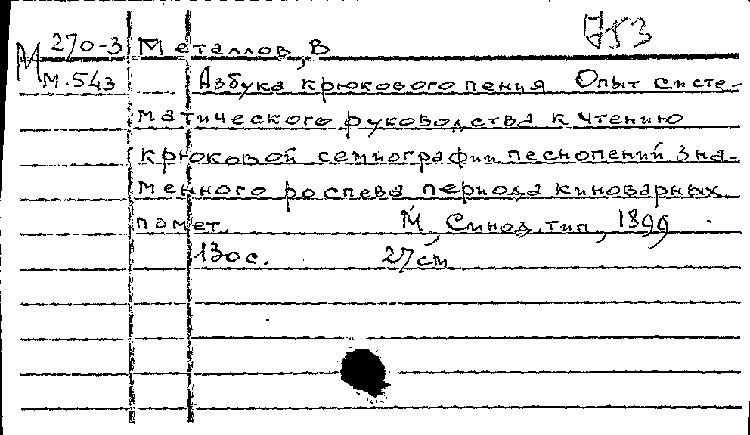 753
М 270-3 Металлов, В
М.543 Азбука крюкового пения Опыт систе-
матического руководства к чтению
крюковой семиографии песнопений зна-
менного роспева периода киноварных
помет. М, Синод. тип, 1899
130 с. 27 см